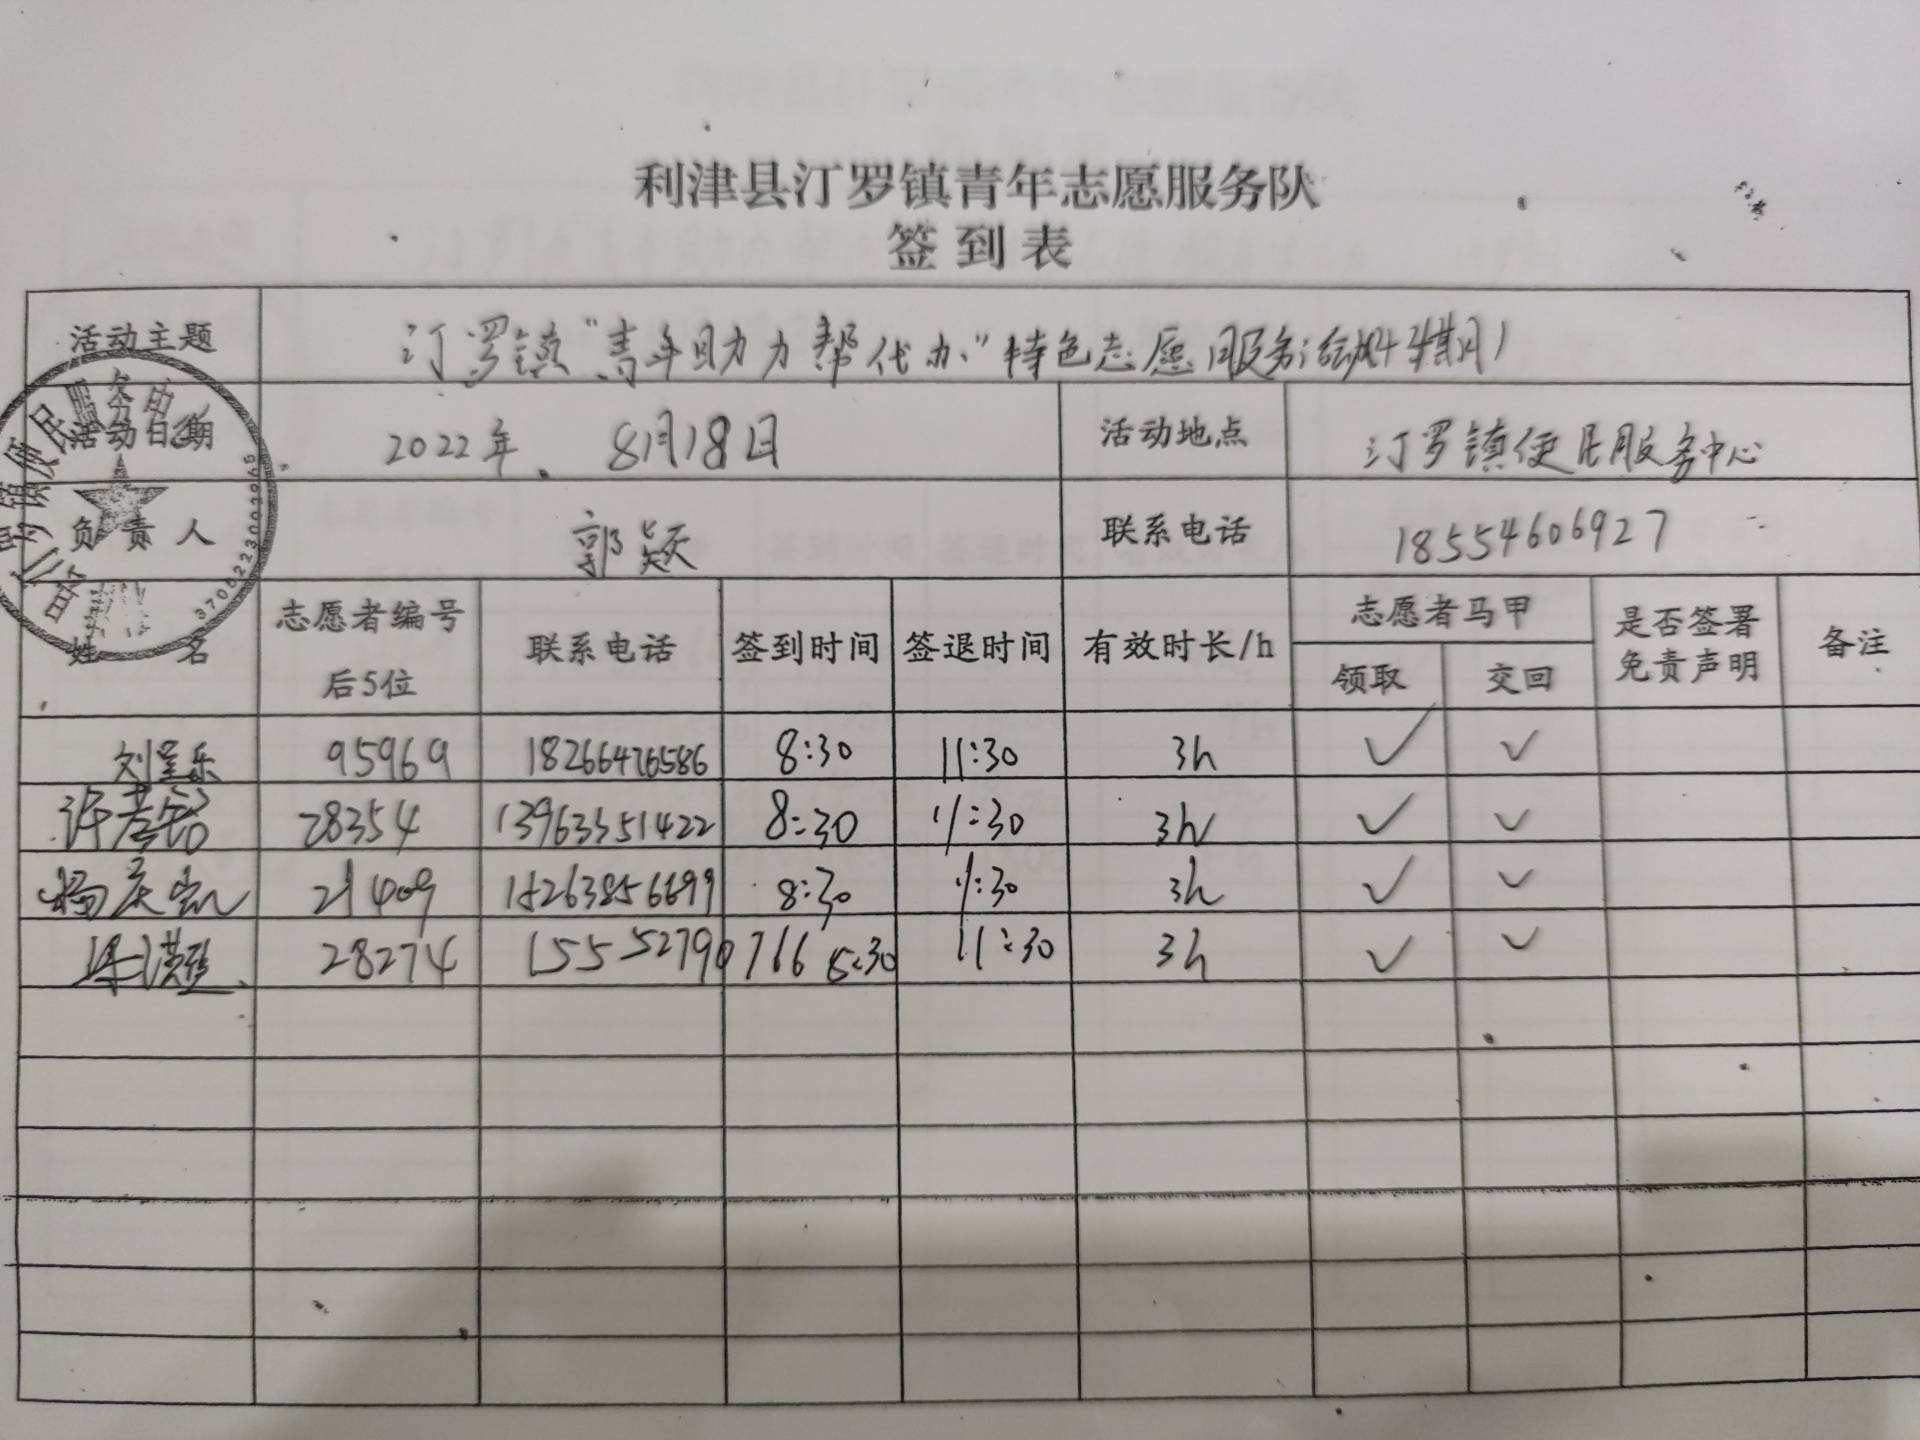 利津县汀罗镇青年志愿服务队
签到表
活动主题 汀罗镇“青年助力帮代办”特色志愿服务活动
活动日期 2022年 8月18日 活动地点 汀罗镇便民服务中心
负责人 郭颖 联系电话 18554606927
姓名 志愿者编号后5位 联系电话 签到时间 签退时间 有效时长/h 志愿者马甲 领取 交回 是否签署免责声明 备注
刘呈乐 95969 18266476586 8:30 11:30 3h ✓ ✓
许 28354 13963351422 8:30 11:30 3h ✓ ✓
杨庆 21409 15263856699 8:30 11:30 3h ✓ ✓
28274 15552790766 8:30 11:30 3h ✓ ✓
3705223002965